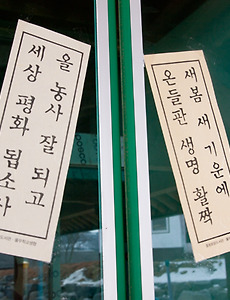 올 농사 잘 되고
세상 평화 됩소사
새봄 새 기운에
온 들판 생명 활짝